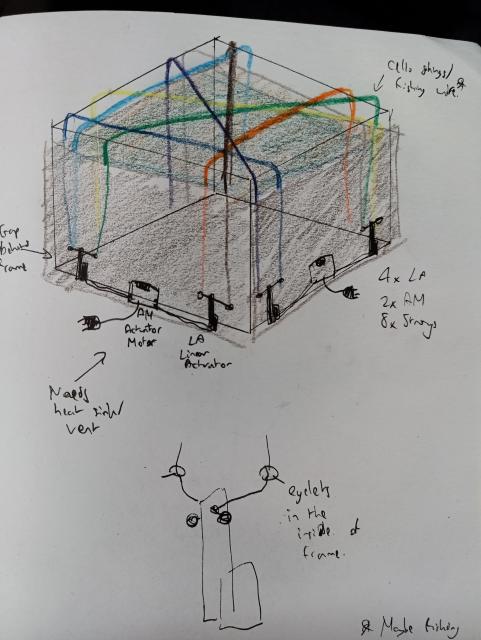 Cello strings/ &
fishing wire.
Gap
behind
frame
4x LA
2x AM
8x Strings
AM
Actuator
Motor
LA
Linear
Actuator
Needs
heat sink/
vent
eyelets
in the
inside of
frame.
& Maybe fishing